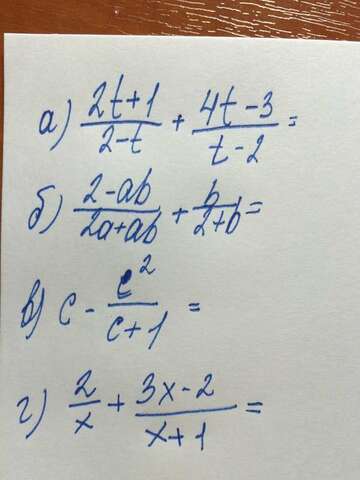 а) (2t+1)/(2-t) + (4t-3)/(t-2) =
б) (2-ab)/(2a+ab) + b/(2+b) =
в) c - c²/(c+1) =
г) 2/x + (3x-2)/(x+1) =